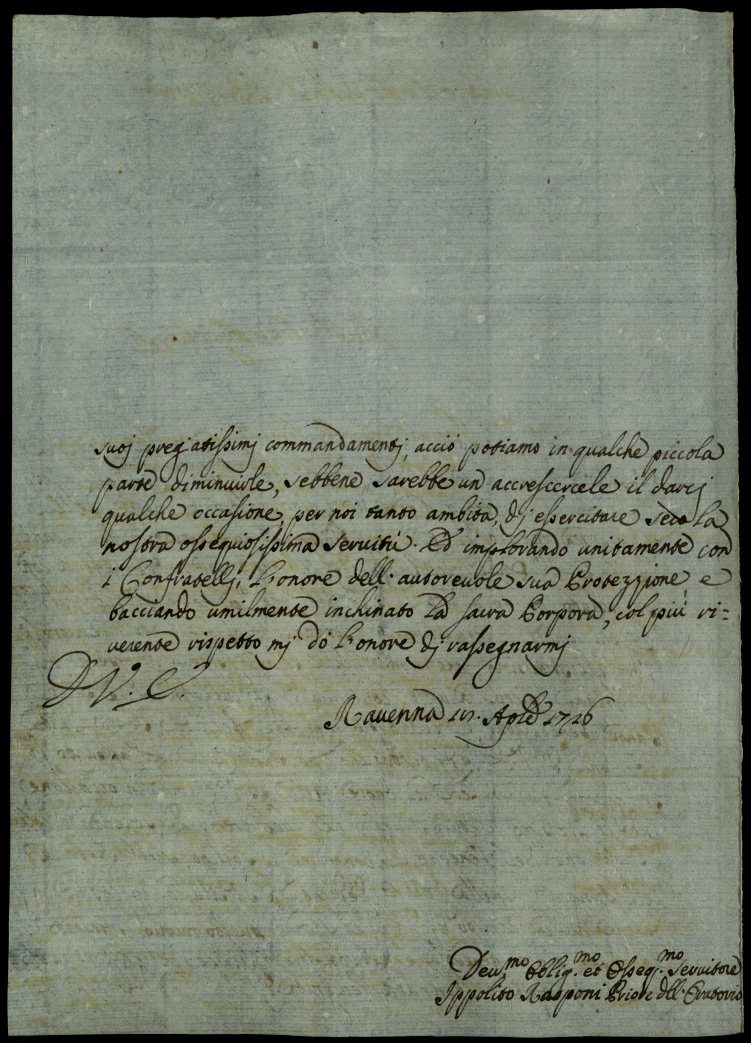 suoj pregiatissimj commandamentj, acciò potiamo in qualche piccola
parte diminuirle, sebbene sarebbe un accrescercele il darcj
qualche occasione, per noi tanto ambita, dj essercitare seco la
nostra ossequiosissima servitù. Ed implorando unitamente con
i Confratellj, l'onore dell'autorevole sua Protezzione e
bacciando umilmente inchinato la sacra Porpora, col più ri=
verente rispetto mj dò l'onore dj rassegnarmj
D V. E.
Ravenna Aple 1726
Deu.mo Oblig.mo et Osseq.mo Servitore
Ippolito Rasponi Priore dell'Oratorio